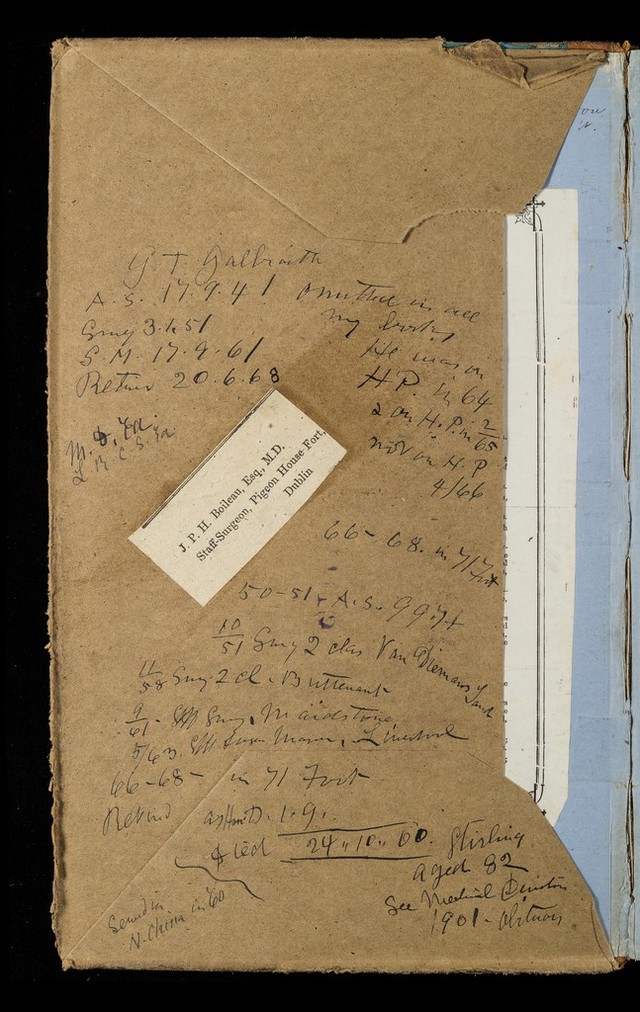 G T Galbraith
A. S. 17.9.41 omitted in all
my books
Surg 3.1.51
He was on
S. M. 17.9.61
H P. in 64
Retire 20.6.68
2 on H. P. in 2/65
M.D.
L R C S.
not on H. P
4/66
J. P. H. Boileau, Esq., M.D.
Staff-Surgeon, Pigeon House Fort,
Dublin
66 - 68. in 71 Foot
50-51 - A. S. 99
10/51 Surg 2 clas Van Diemans Land
11/58 Surg. 2 cl.
9/61 - Stff Surg, Maidstone
5/63. Stff Surgn Major,
66-68 - in 71 Foot
Retired as
Died 24"10"00. Stirling
aged 82
See Medical Directory
1901 - obituary
Served in
N. China in '60